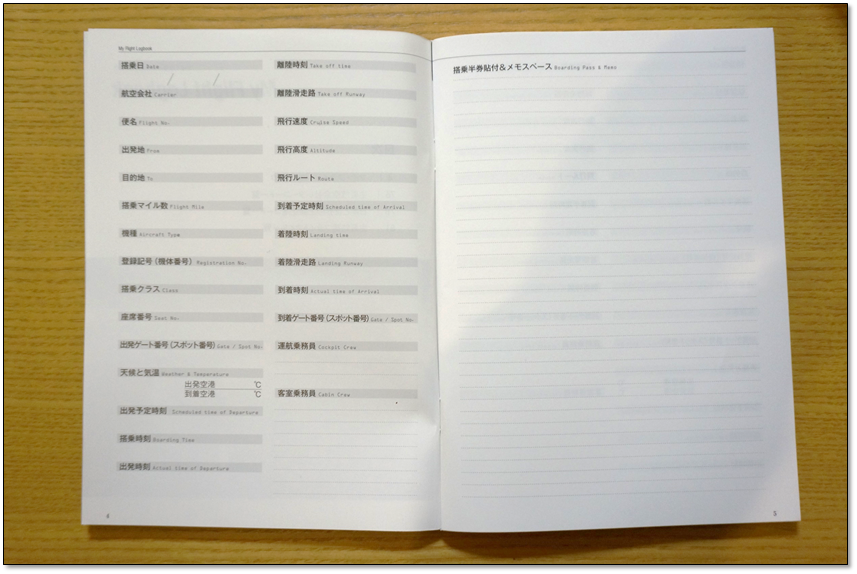 My Flight Logbook
搭乗日 Date
/ /
航空会社 Carrier
便名 Flight No.
出発地 From
目的地 To
搭乗マイル数 Flight Mile
機種 Aircraft Type
登録記号(機体番号) Registration No.
搭乗クラス Class
座席番号 Seat No.
出発ゲート番号(スポット番号) Gate / Spot No.
天候と気温 Weather & Temperature
出発空港 ℃
到着空港 ℃
出発予定時刻 Scheduled time of Departure
搭乗時刻 Boarding Time
出発時刻 Actual time of Departure
4
離陸時刻 Take off time
離陸滑走路 Take off Runway
飛行速度 Cruise Speed
飛行高度 Altitude
飛行ルート Route
到着予定時刻 Scheduled time of Arrival
着陸時刻 Landing time
着陸滑走路 Landing Runway
到着時刻 Actual time of Arrival
到着ゲート番号(スポット番号) Gate / Spot No.
運航乗務員 Cockpit Crew
客室乗務員 Cabin Crew
搭乗半券貼付&メモスペース Boarding Pass & Memo
5